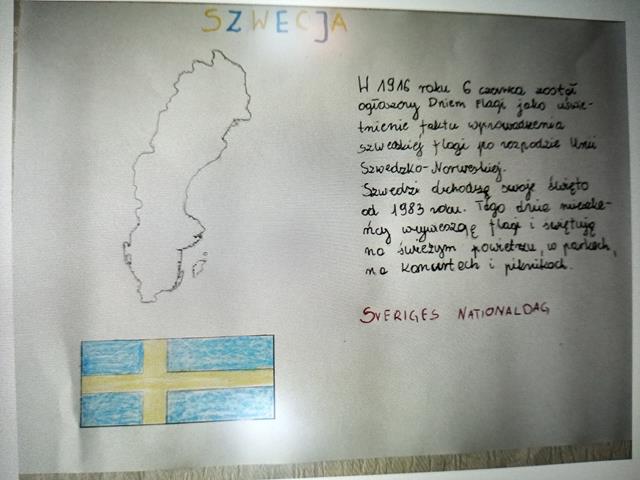 SZWECJA
W 1916 roku 6 czerwca został
ogłoszony Dniem Flagi jako uświe-
tnienie faktu wprowadzenia
szwedzkiej flagi po rozpadzie Unii
Szwedzko-Norweskiej.
Szwedzi obchodzą swoje święto
od 1983 roku. Tego dnia mieszka-
ńcy wywieszają flagi i świętują
na świeżym powietrzu, w parkach,
na koncertach i piknikach.
SVERIGES NATIONALDAG